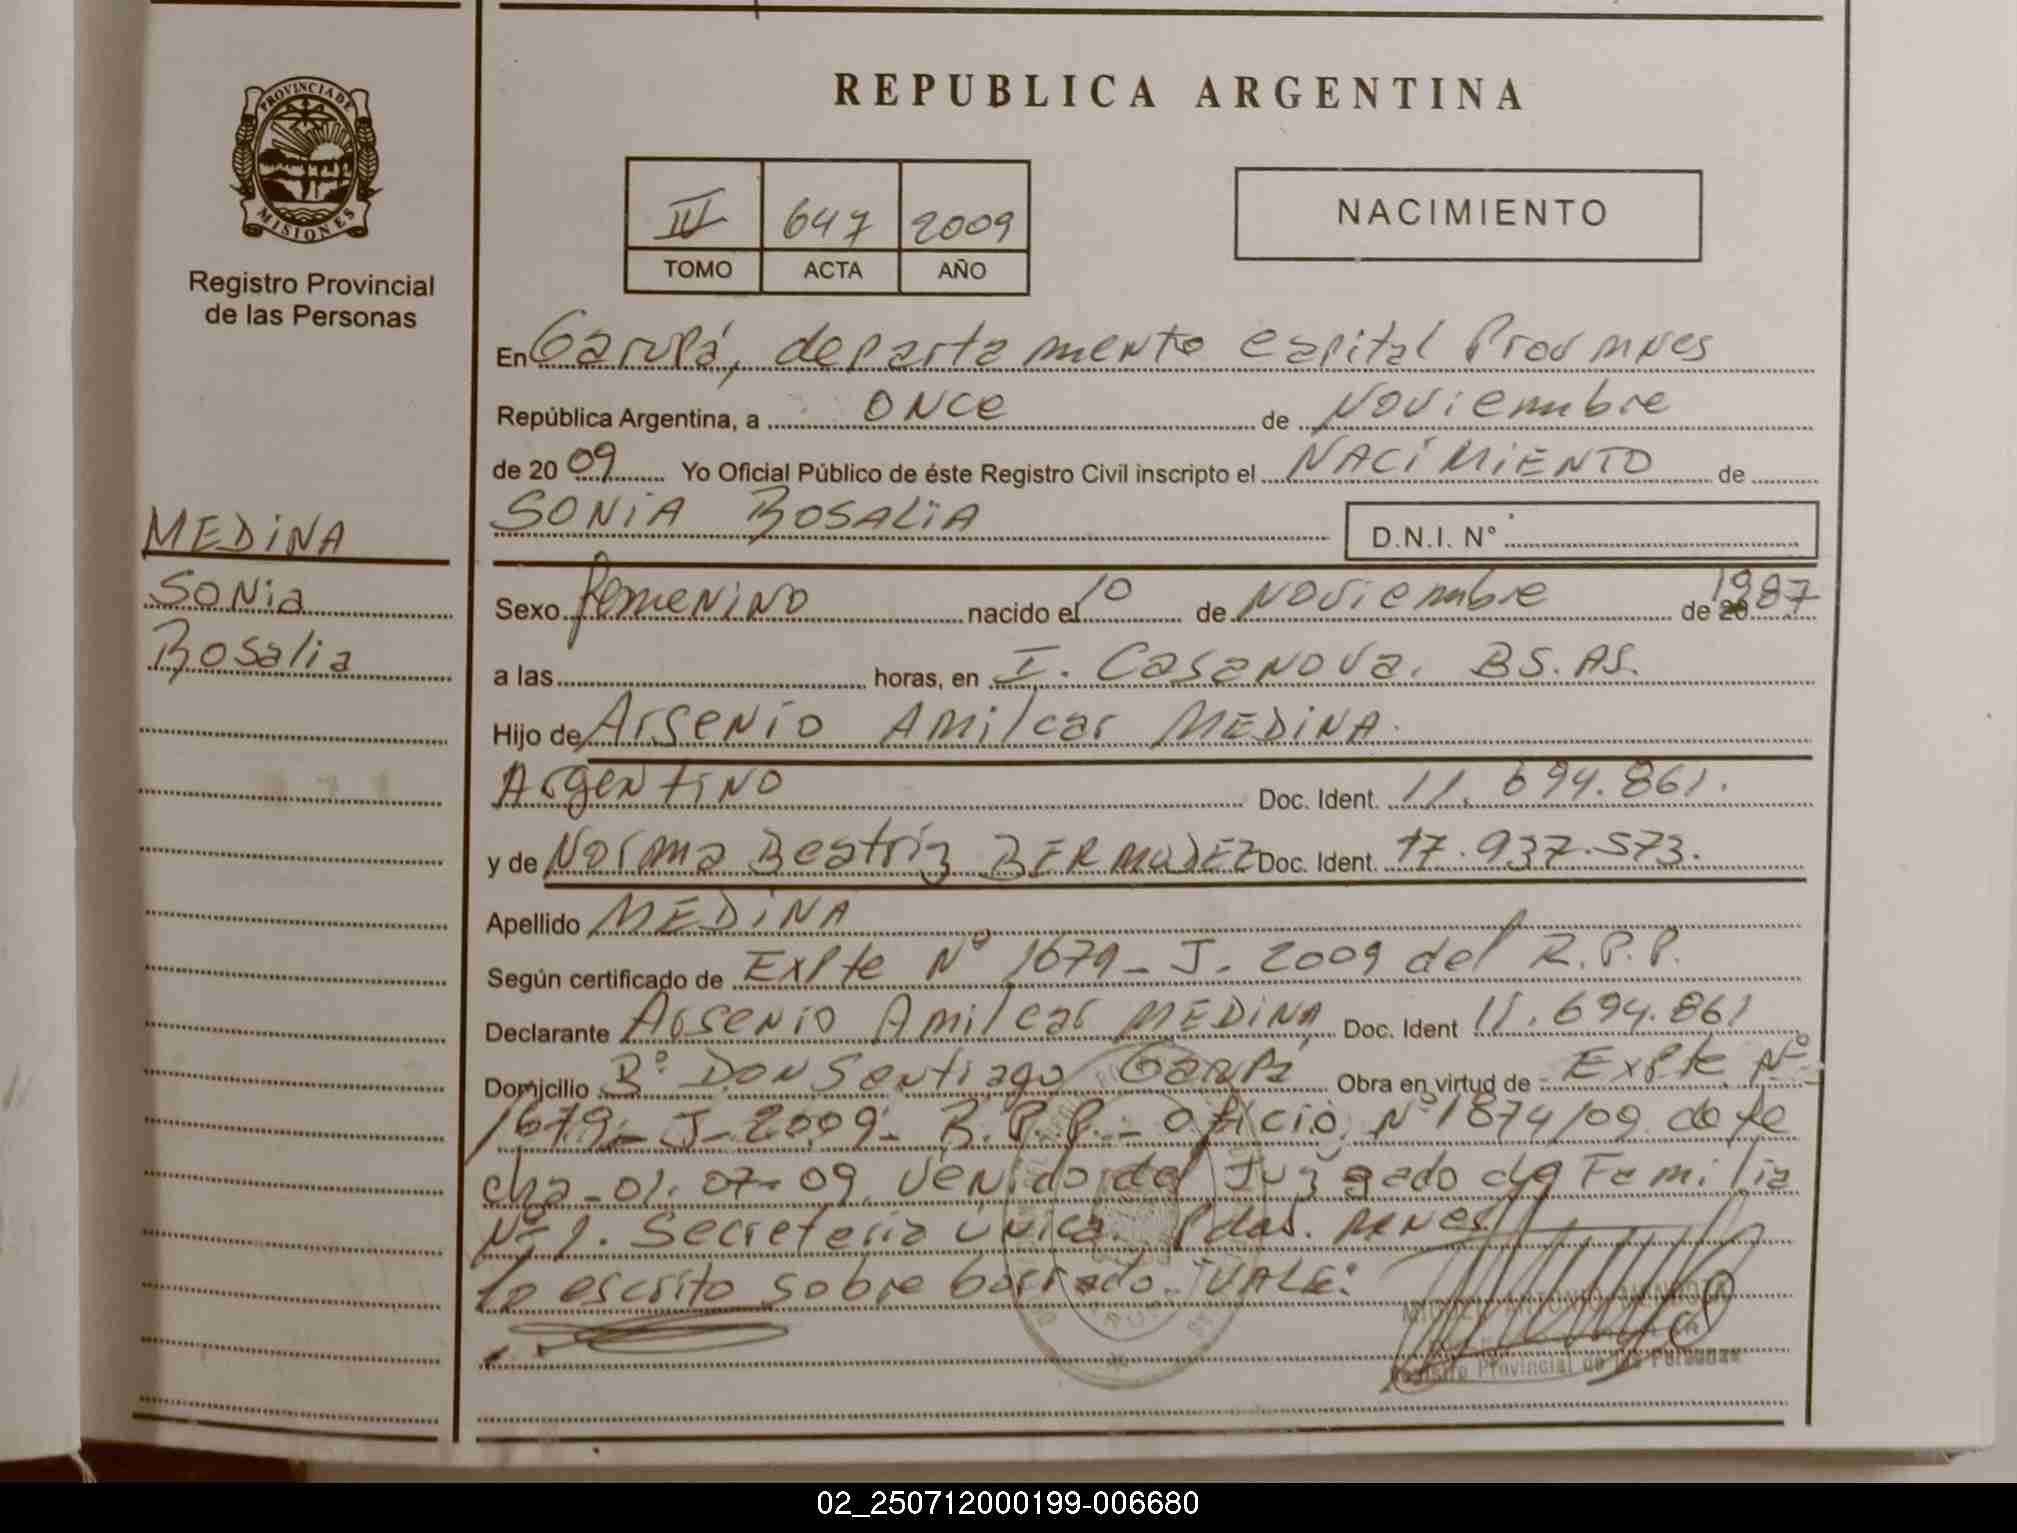 REPUBLICA ARGENTINA
PROVINCIA DE
MISIONES
Registro Provincial
de las Personas
IV 647 2009
TOMO ACTA AÑO
NACIMIENTO
MEDINA
SONia
Rosalia
En Garupá, departamento capital Prov mnes
República Argentina, a ONCe de Noviembre
de 20 09 Yo Oficial Público de éste Registro Civil inscripto el NACIMIENTO de
SONIA ROSALIA D.N.I. N°
Sexo femenino nacido el 10 de Noviembre de 1987
a las horas, en I. Casanova. BS. AS.
Hijo de Arsenio Amilcar MEDINA.
Argentino Doc. Ident. 11.694.861.
y de Norma Beatriz BERMUDEZ Doc. Ident. 17.937.573.
Apellido MEDINA
Según certificado de Expte N° 1679-J-2009 del R.P.P.
Declarante Arsenio Amilcar MEDINA Doc. Ident 11.694.861
Domicilio B° DON Santiago Garupá Obra en virtud de Expte N°
1679-J-2009- R.P.P.- Oficio N° 1874/09 de fe
cha-01-07-09 venido del Juzgado de Familia
N° 1. Secretaria Unica. Pdas. mnes
lo escrito sobre borrado. VALE:
Registro Provincial de las Personas
02_250712000199-006680